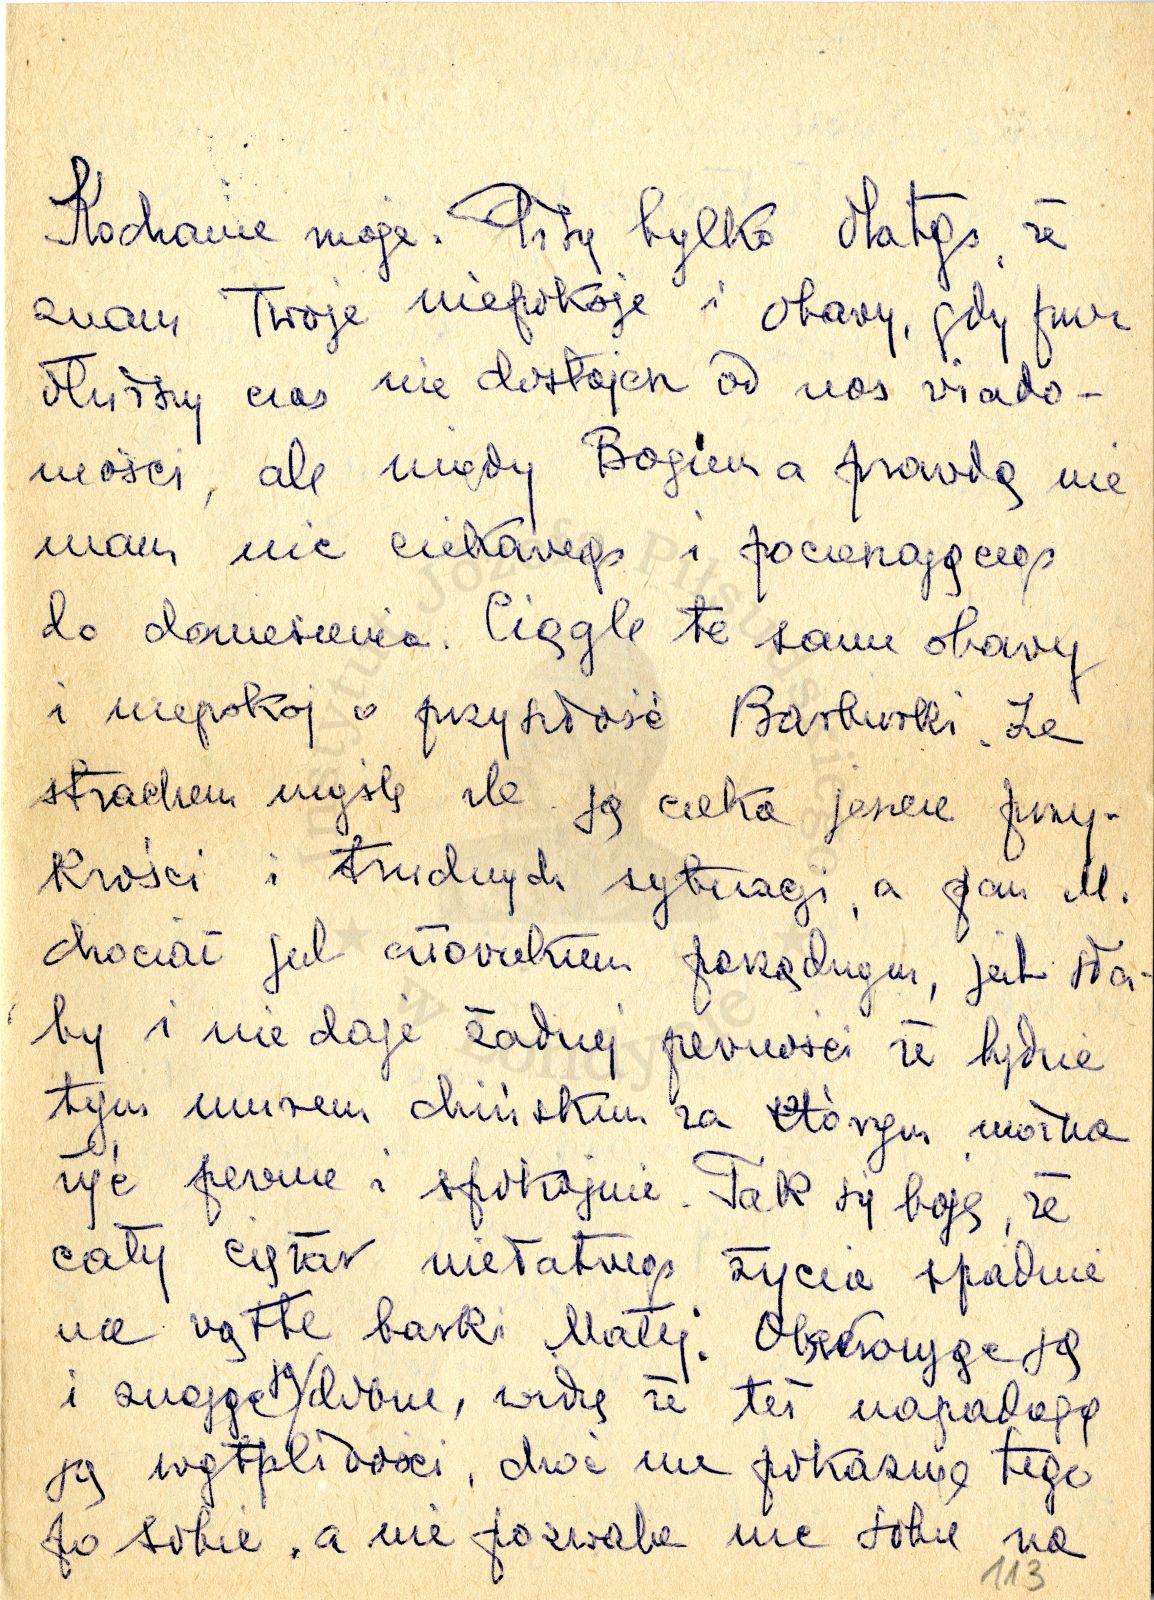 Kochanie moje. Piszę tylko dlatego, że
znam Twoje niepokoje i obawy, gdy przez
dłuższy czas nie dostajesz od nas wiado-
mości, ale między Bogiem a prawdą nie
mam nic ciekawego i pocieszającego
do doniesienia. Ciągle te same obawy
i niepokój o przyszłość Barburki. Ze
strachem myślę ile ją czeka jeszcze przy-
krości i trudnych sytuacji, a pan M.
chociaż jest człowiekiem porządnym, jest sła-
by i nie daje żadnej pewności że będzie
tym murem chińskim za którym można
żyć pewnie i spokojnie. Tak się boję, że
cały ciężar niełatwego życia spadnie
na wątłe barki Małej. Obserwując ją
i znając ją dobrze, widzę że też napadają
ją wątpliwości, choć nie pokazuje tego
po sobie, a nie pozwala nie sobie na
113
Instytut Józefa Piłsudskiego
w Londynie